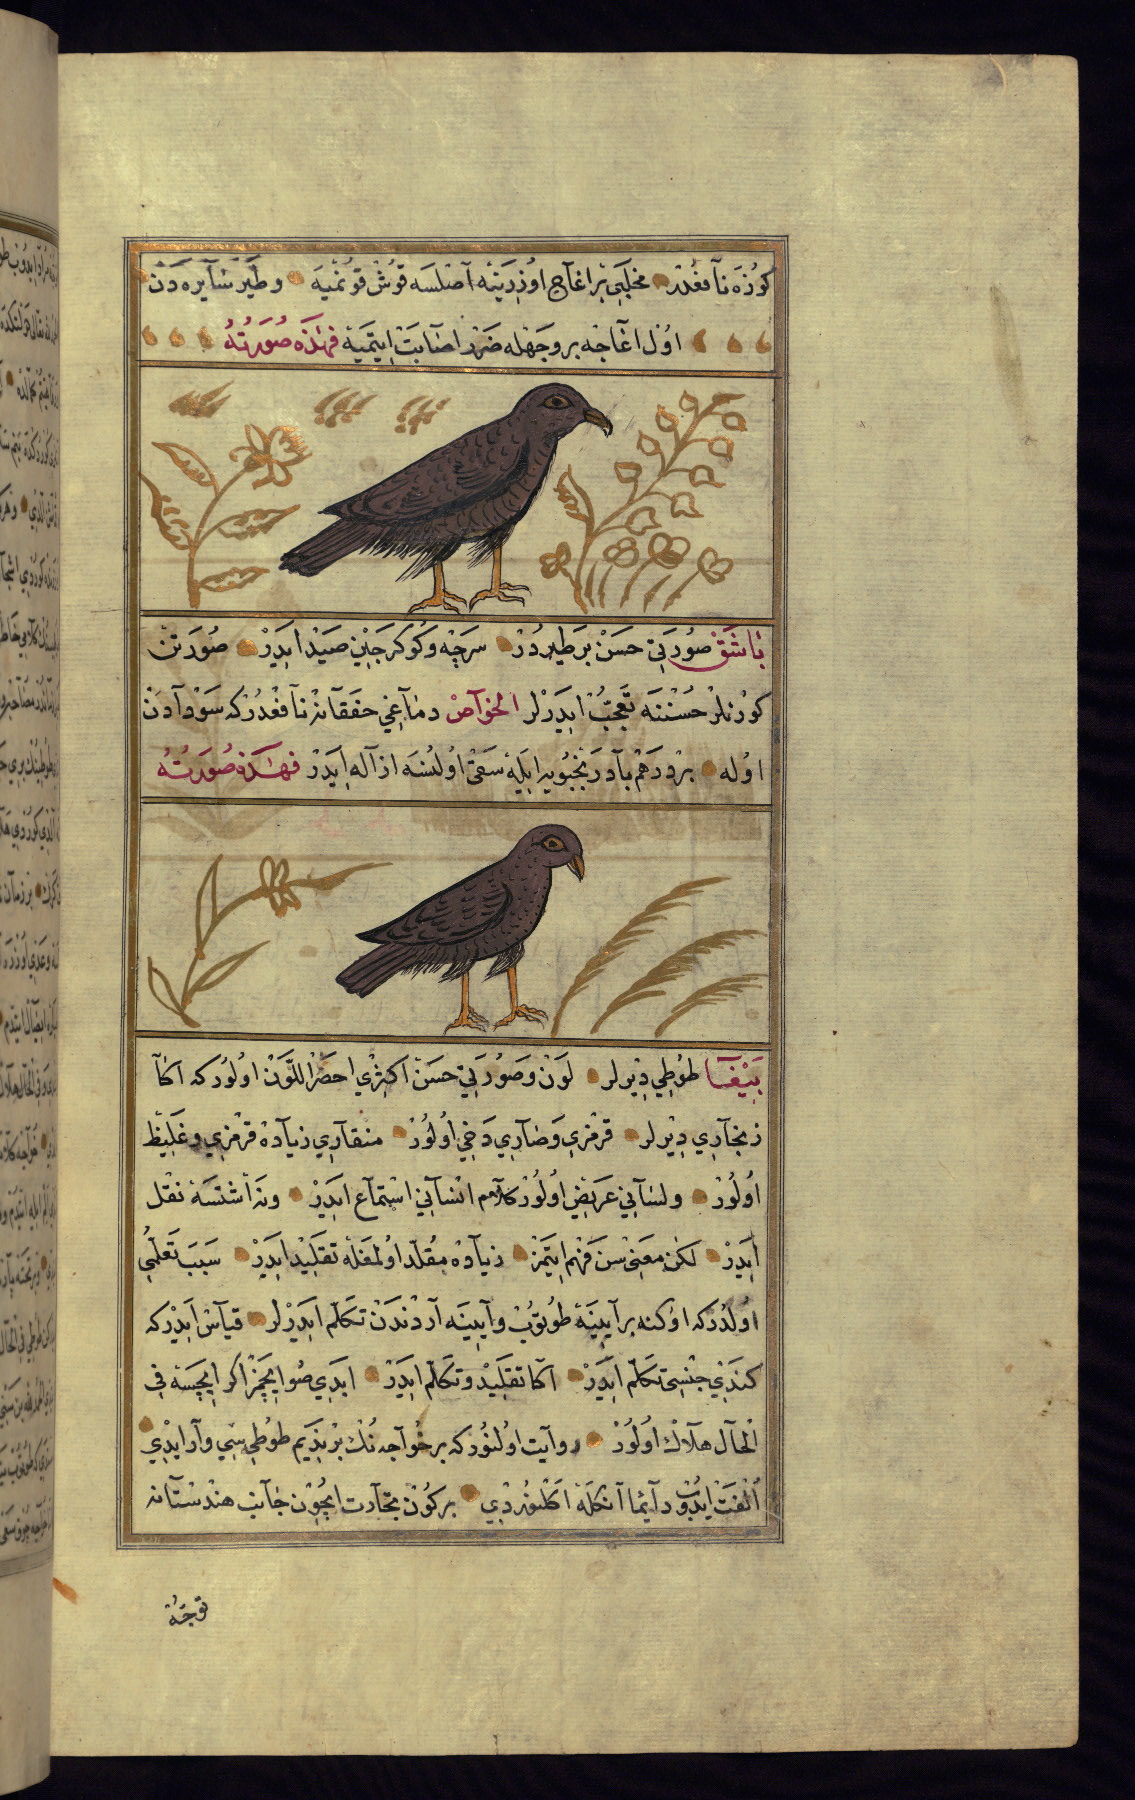 كوزه نافعدر مخلبى بر اغاج اوزرينه آصلسه قوش قونميه و طير سايره دن
اول اغاجه بر وجهله ضرر اصابت ايتميه فهذه صورته
باشق صورتى حسن بر طيردر سرچه و كوكرجين صيد ايدر صورتن
كورنلر حسننه تعجب ايدرلر الخواص دماغى خفقانه نافعدر كه سودآدن
اوله بر درهم بادرنجبويه ايله سقى اولنسه ازاله ايدر فهذه صورته
ببغا طوطى ديرلر لون و صورتى حسن اكثرى احضر اللون اولور كه اكا
زنجارى ديرلر قرمزى و صارى دخى اولور منقارى زياده قرمزى و غليظ
اولور و لسانى عريض اولور كلام انسانى استماع ايدر و نه اشتسه نقل
ايدر لكن معنى سن فهم ايتمز زياده مقلد اولمغله تقليد ايدر سبب تعلمى
اولدر كه اوكنه بر آيينه طوتوب و آيينه آردندن تكلم ايدرلر قياس ايدر كه
كندى جنسى تكلم ايدر اكا تقليد و تكلم ايدر ابدى صو ايچمز اكر ايچسه فى
الحال هلاك اولور روايت اولنور كه بر خواجه نك بر نديم طوطى سى وار ايدى
الفت ايدوب دآيما آنكله اكلنوردى بر كون تجارت ايچون جانب هندستانه
توجه